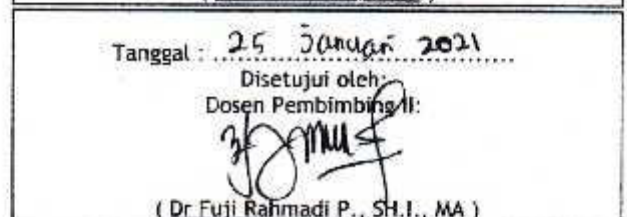 Tanggal : 25 Januari 2021
Disetujui oleh:
Dosen Pembimbing II:
( Dr Fuji Rahmadi P., SH.I., MA )